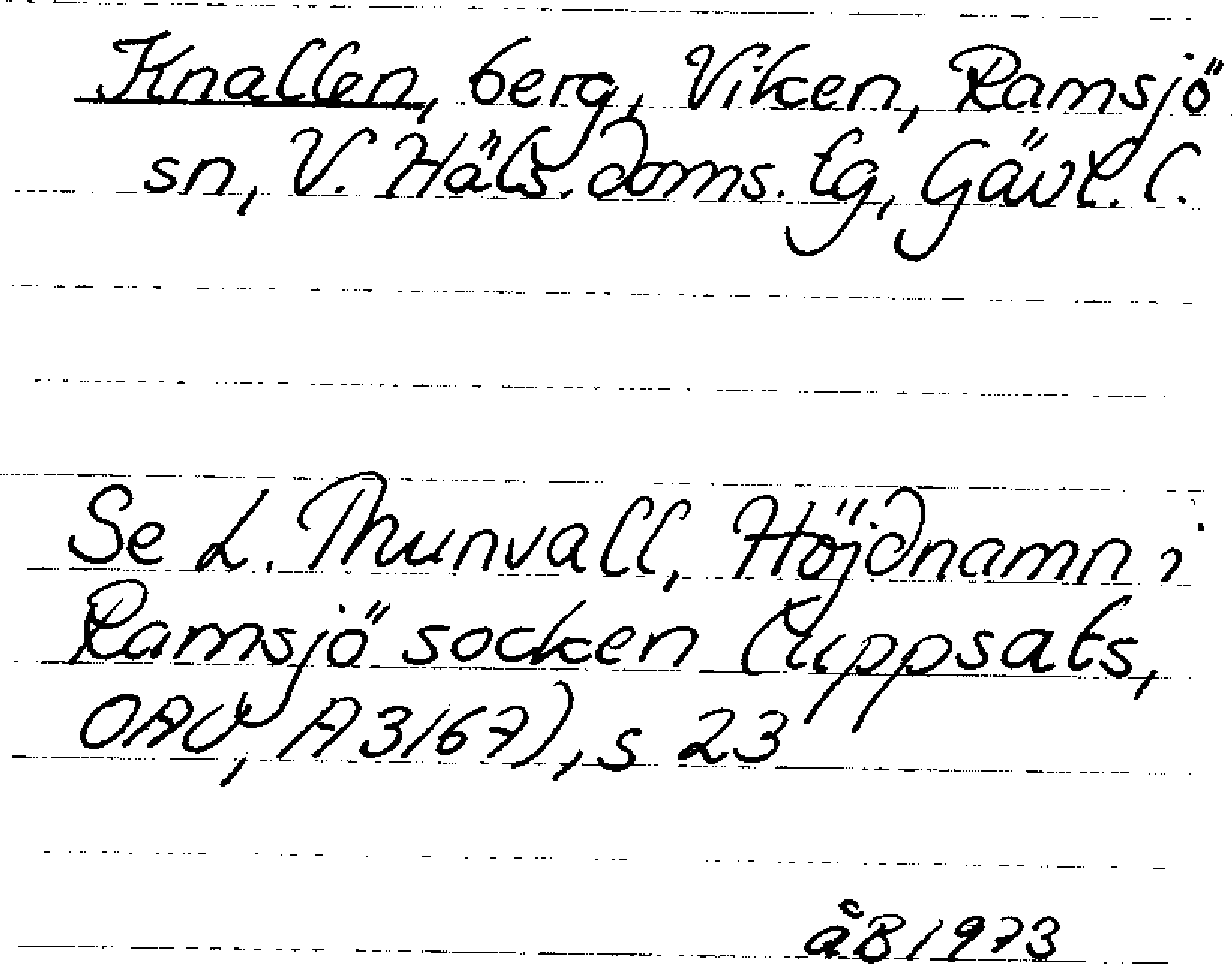 Knallen, berg, Viken, Ramsjö
sn, V. Häls. doms. tg, Gävl. l.
Se L. Thunvall, Höjdnamn i
Ramsjö socken (uppsats,
OAU, A3167), s 23
åB 1973